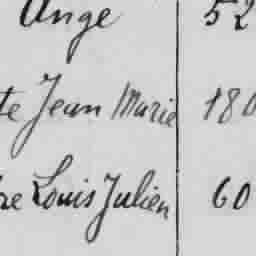 Ange 52
te Jean Marie 180
re Louis Julien 60